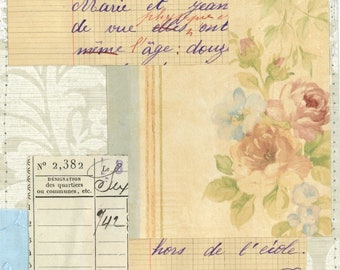 Marie et Jean
physiques
de vue elles ont
même l'âge: douze
N° 2,382
DÉSIGNATION
des quartiers
ou communes, etc.
1/42
hors de l'école.